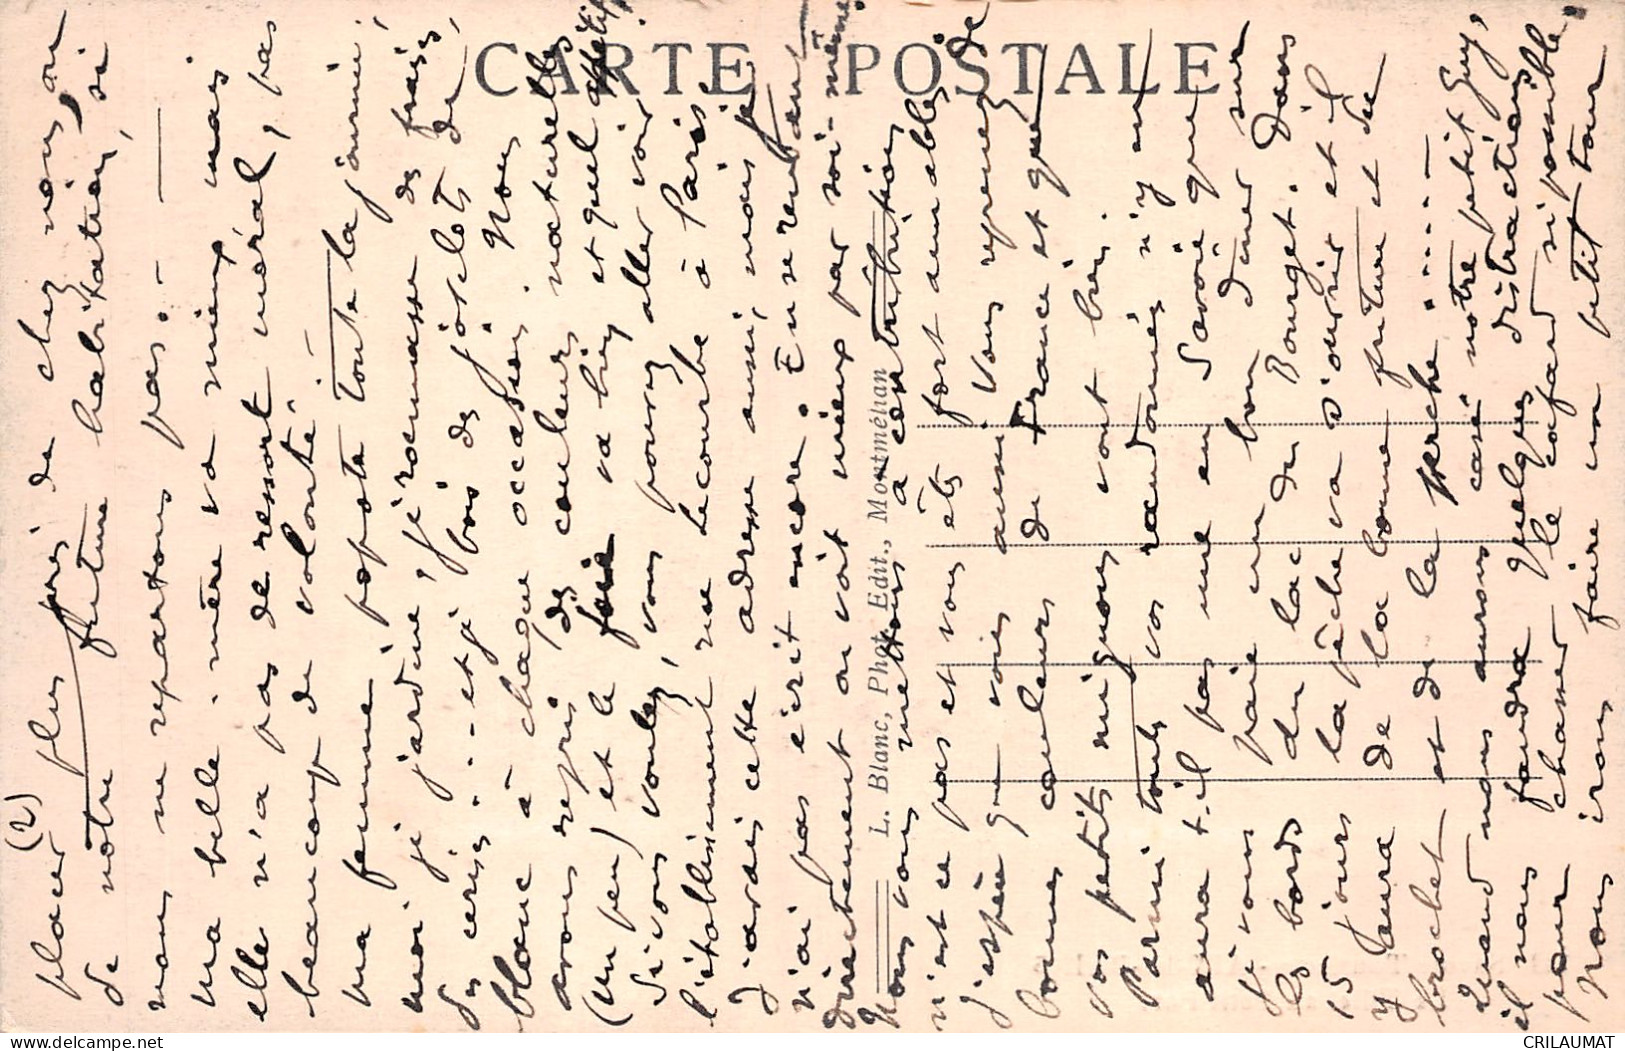 CARTE POSTALE
L. Blanc, Phot. Edit., Montmélian
(2)
placer plus près de chez nous ou
de notre future habitation, si
nous ne repartons pas. —
Ma belle-mère va mieux mais
elle n'a pas de ressort moral, pas
beaucoup de volonté. —
Ma femme popote toute la journée;
moi je jardine, je ramasse des fraises,
des cerises... et je bois des jóselets de
blanc à chaque occasion. Nous
avons repris des couleurs naturelles
(un peu) et le foie va bien et quel appétit
Si vous voulez, vous pouvez aller voir
l'établissement rue Lecourbe à Paris.
J'avais cette adresse aussi, mais je
n'ai pas écrit encore. En se rendant
directement on voit mieux par soi-même
Nous vous mettons à contribution
n'est ce pas et vous êtes fort aimables
J'espère que vous aussi vous reprenez de
bonnes couleurs de France et que
vos petits mignons vont bien.
Parmi toutes vos randonnées n'y en
aura t-il pas une en Savoie que
je vous paie un bon dîner sur
les bords du lac du Bourget. Dans
15 jours la pêche va s'ouvrir et il
y aura de la bonne friture et du
brochet et de la perche.....—
Quand nous aurons casé notre petit Guy,
il nous faudra quelques distractions
pour chasser le cafard si possible.
Nous irons faire un petit tour
CRILAUMAT